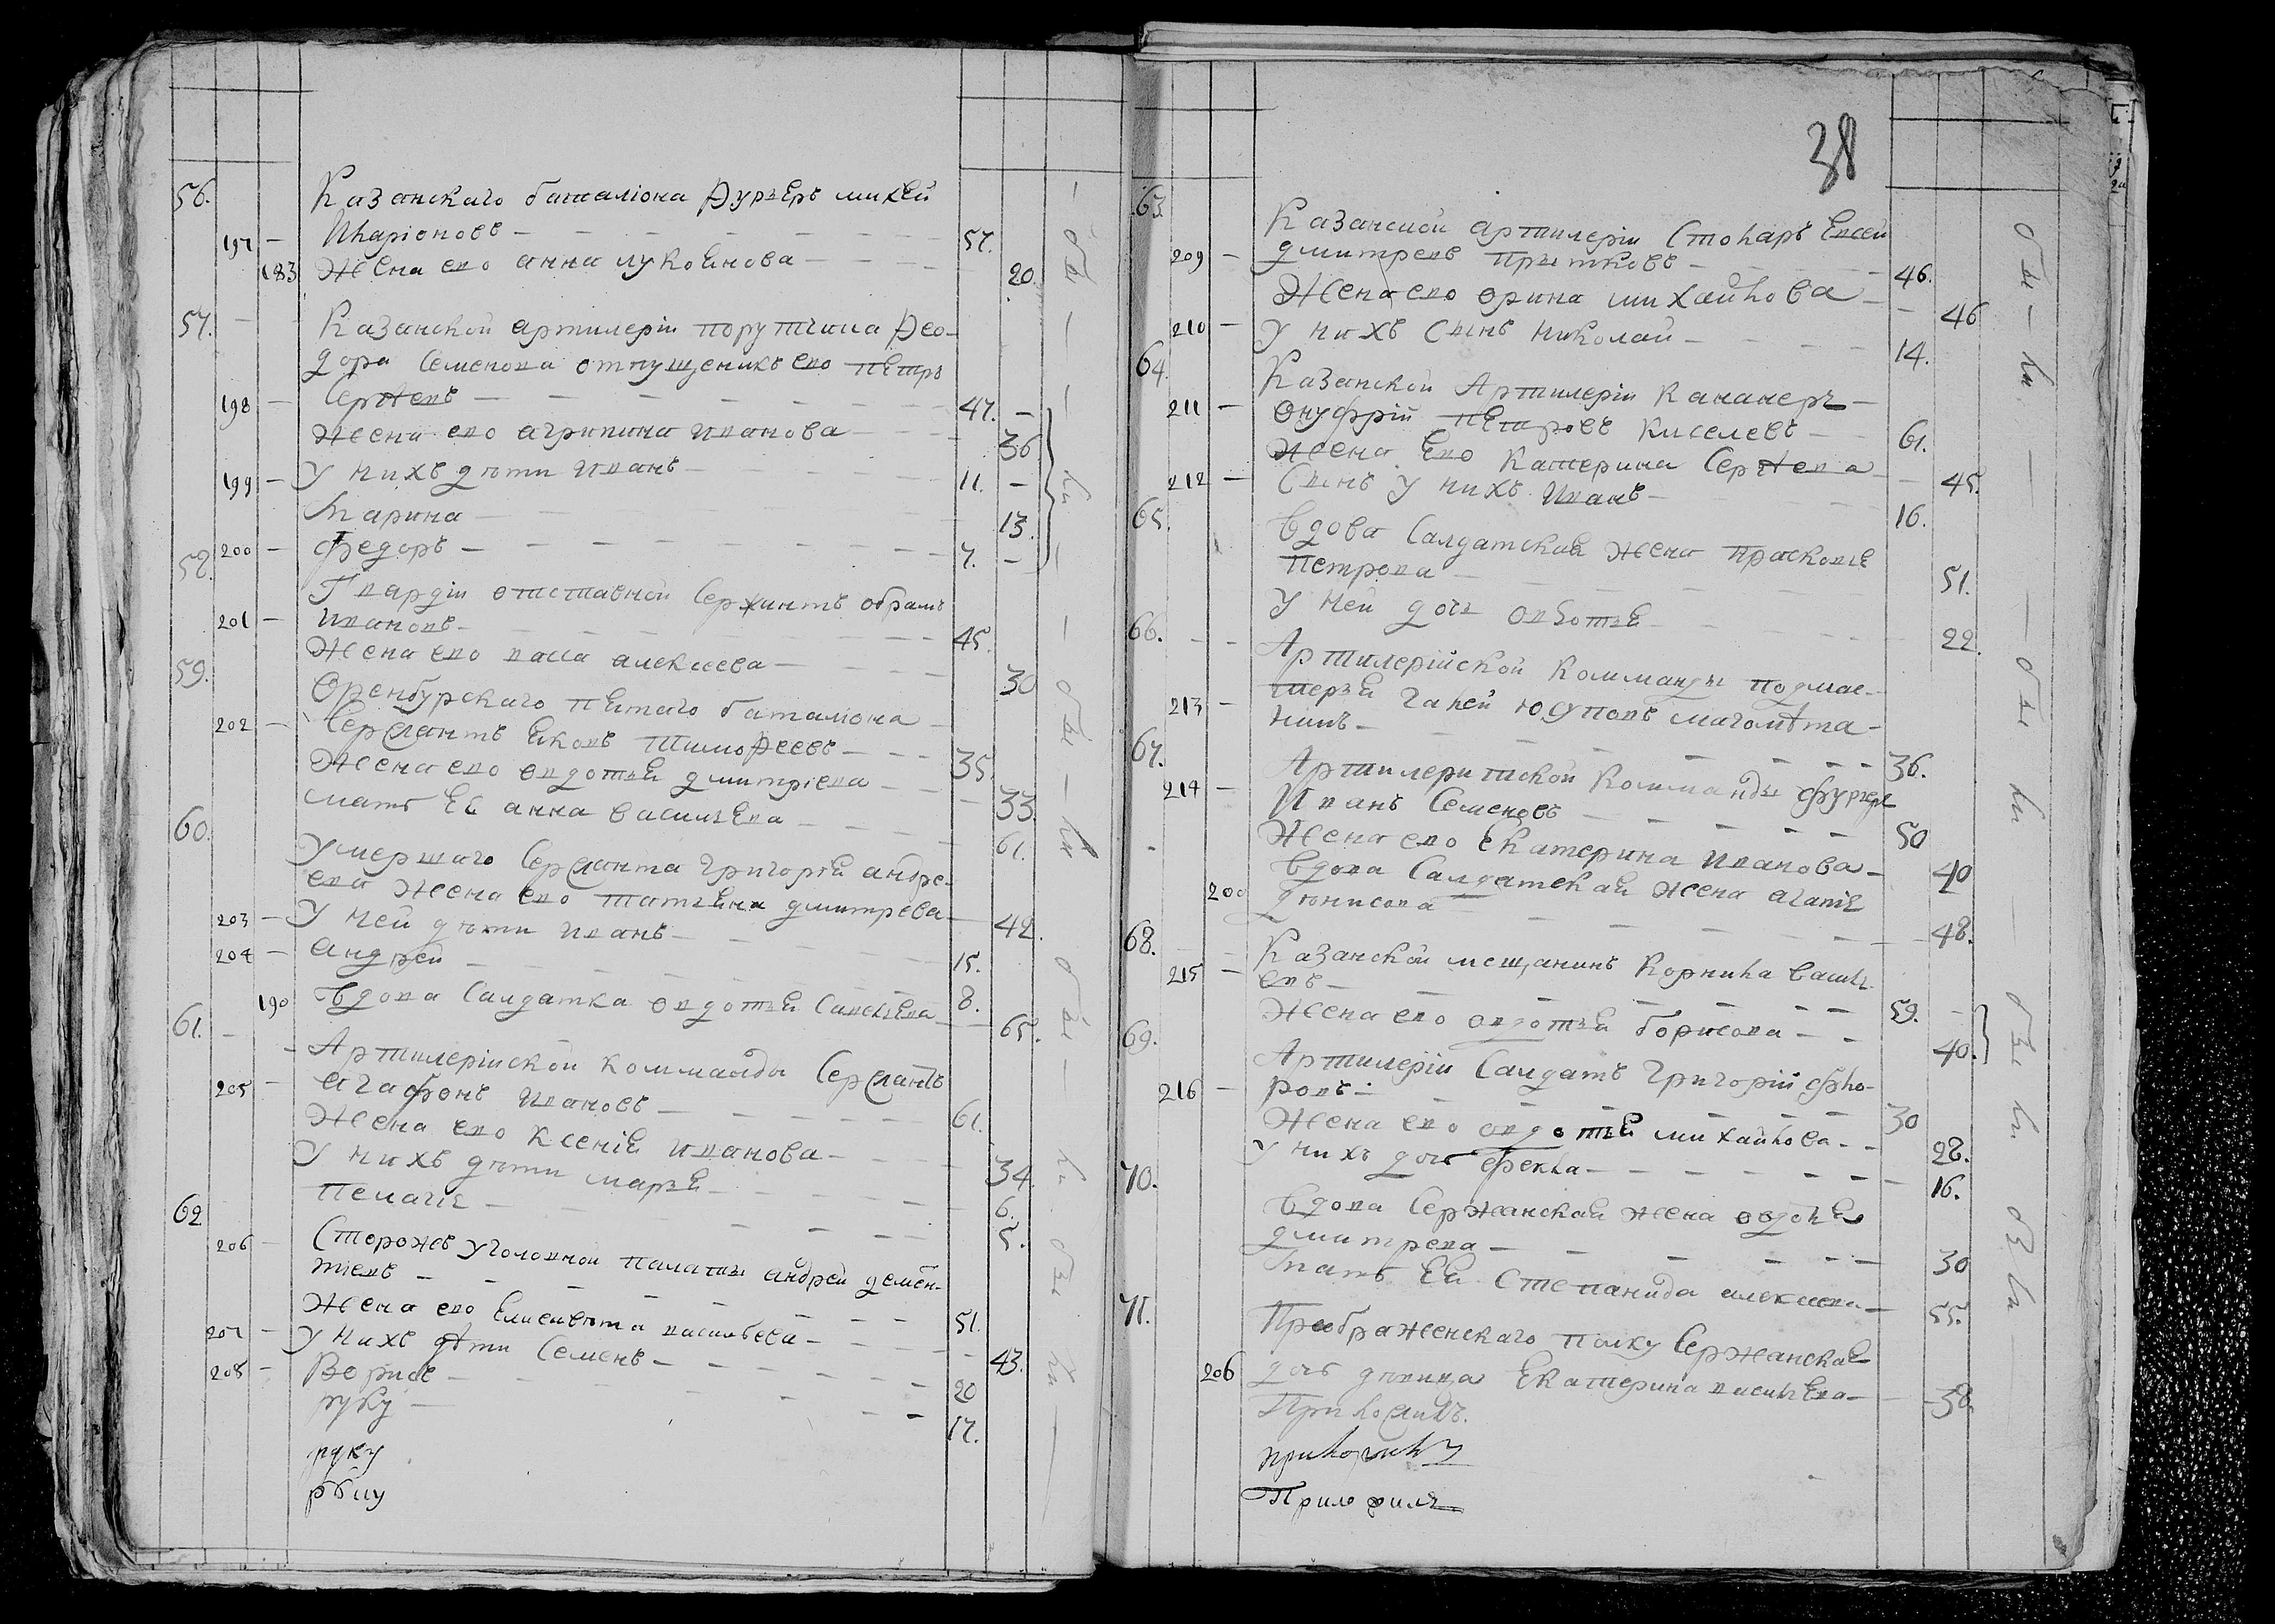 56. Казанскаго баталіона Фурьеръ михей
197 — Иларіоновъ — 57.
183 Жена ево анна лукоянова — 20.
57. Казанской артилеріи порутчика Фео-
дора Семенова отпущеникъ ево петръ
198 — Сергеевъ — 47. —
жена ево агрипина иванова — 36
199 — У нихъ дѣти иванъ — 11. —
Марина — 13.
58. 200 — федоръ — 7. —
Гвардіи отставной Сержантъ обрамъ
201 — ивановъ — 45.
Жена ево васса алексеева — 30
59. Оренбурскаго пятаго баталиона
202 — Сержантъ яковъ Тимофеевъ — 35
Жена ево овдотья дмитріева — 33
мать Ея анна васильева — 61.
60. Умершаго Сержанта григорья андре-
ева жена ево татьяна дмитрева — 42.
203 — У ней дѣти иванъ — 15.
204 — андрей — 8.
190 вдова Салдатка овдотья Савельева — 65.
61. — Артилерійской комманды Сержантъ
205 — агафонъ ивановъ — 61.
Жена ево ксенія иванова — 34
У нихъ дѣти марья — 6.
пелагіе — 5.
62 Сторожъ уголовной палаты андрей демен-
206 — тіевъ — 51.
Жена ево Елисавѣта васильева — 43.
207 — У нихъ дѣти Семенъ — 20
208 — Борисъ — 17.
руку —
руку
38
63. Казанской артилеріи Столяръ Евсей
209 — дмитревъ прытковъ — 46.
Жена ево орина михайлова — 46
210 — У нихъ Сынъ николай — 14.
64. Казанской Артилеріи Кананеръ —
211 — онуфрій петровъ киселевъ — 61.
жена Ево катерина Сергеева — 45.
212 — Сынъ у нихъ иванъ — 16.
65. вдова Салдатская жена прасковіе
петрова — 51.
У ней дочь овдотья — 22.
66. — Артилерійской комманды подмас-
213 — терья галей юсуповъ магомѣта-
нинъ — 36.
67. Артилеритской комманды фурьер
214 — Иванъ Семеновъ — 50
Жена ево екатерина иванова — 40
вдова Салдатская жена агапіе
200 дѣнисова — 48.
68. Казанской мещанинъ корнила василь
215 — евъ — 59.
Жена ево овдотья борисова — 40.
69. Артилеріи Салдатъ григорій фло-
216 — ровъ — 30
Жена ево овдотья михайлова — 28.
У нихъ дочь фекла — 16.
70. вдова Сержанская жена овдотья
дмитрева — 30
мать Ея Степанида алексеева — 55.
71. Преображенскаго полку Сержанская
206 дочь дѣвица Екатерина васильева — 38.
Приложилъ.
приложилъ
Приложилъ